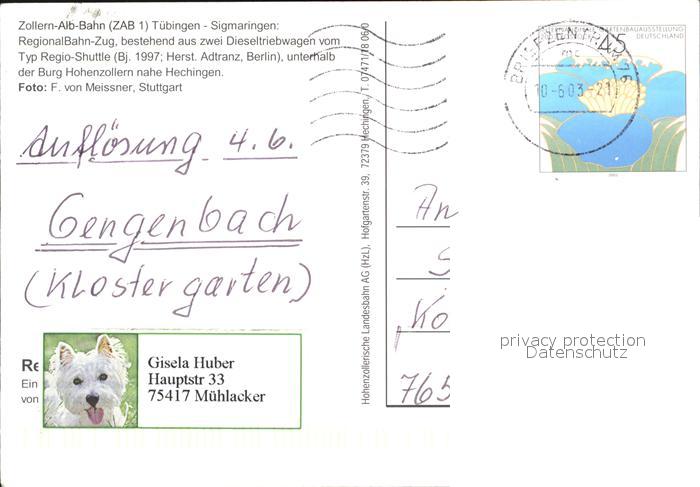 Zollern-Alb-Bahn (ZAB 1) Tübingen - Sigmaringen:
RegionalBahn-Zug, bestehend aus zwei Dieseltriebwagen vom
Typ Regio-Shuttle (Bj. 1997; Herst. Adtranz, Berlin), unterhalb
der Burg Hohenzollern nahe Hechingen.
Foto: F. von Meissner, Stuttgart
Auflösung 4.6.
Gengenbach
(Klostergarten)
Re
Ein
von
Gisela Huber
Hauptstr 33
75417 Mühlacker
Hohenzollerische Landesbahn AG (HzL), Hofgartenstr. 39, 72379 Hechingen, T. 07471/18 06/0
45
DEUTSCHLAND
BRIEFZENTRUM 76
10-6.03-21
An
S
"Kö
765
privacy protection
Datenschutz